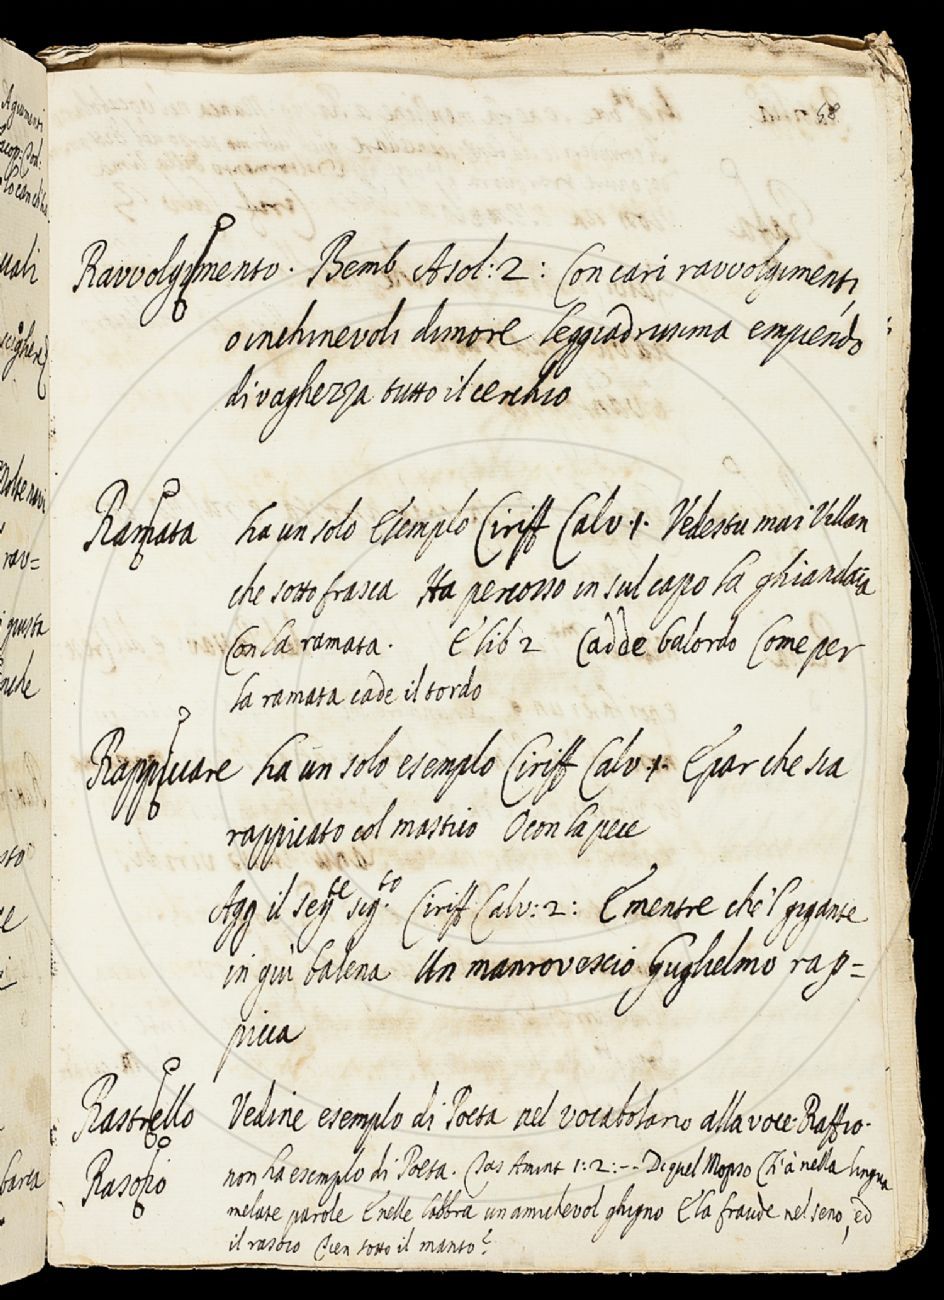 68
Ravvolgimento. Bemb Asol: 2: Con cari ravvolgimenti,
o inchinevoli dimore leggiadrissima empiendo
di vaghezza tutto il cerchio
Ramata ha un solo Esempio Ciriff Calv. 1. Vedestu mai Villan
che sotto frasca Ha percosso in sul capo la ghiandaia
Con la ramata. E lib 2 Cadde balordo Come per
la ramata cade il tordo
Rappiccare ha un solo esempio Ciriff Calv. 1. E par che sia
rappicato col mastico O con la pece
Agg il segte sigto. Ciriff Calv: 2: E mentre che'l gigante
in giù balena Un manrovescio Guglielmo rap=
picca
Rastrello Vedine esempio di Poeta nel vocabolario alla voce Raffio.
Rasoio non ha esempio di Poeta. Tas Amint 1: 2: -- Di quel Mopso Ch'à nella lingua
melate parole E nelle labbra un amichevol ghigno E la fraude nel seno, ed
il rasoio Tien sotto il manto
Agiamenti
uali
rav=
giusta